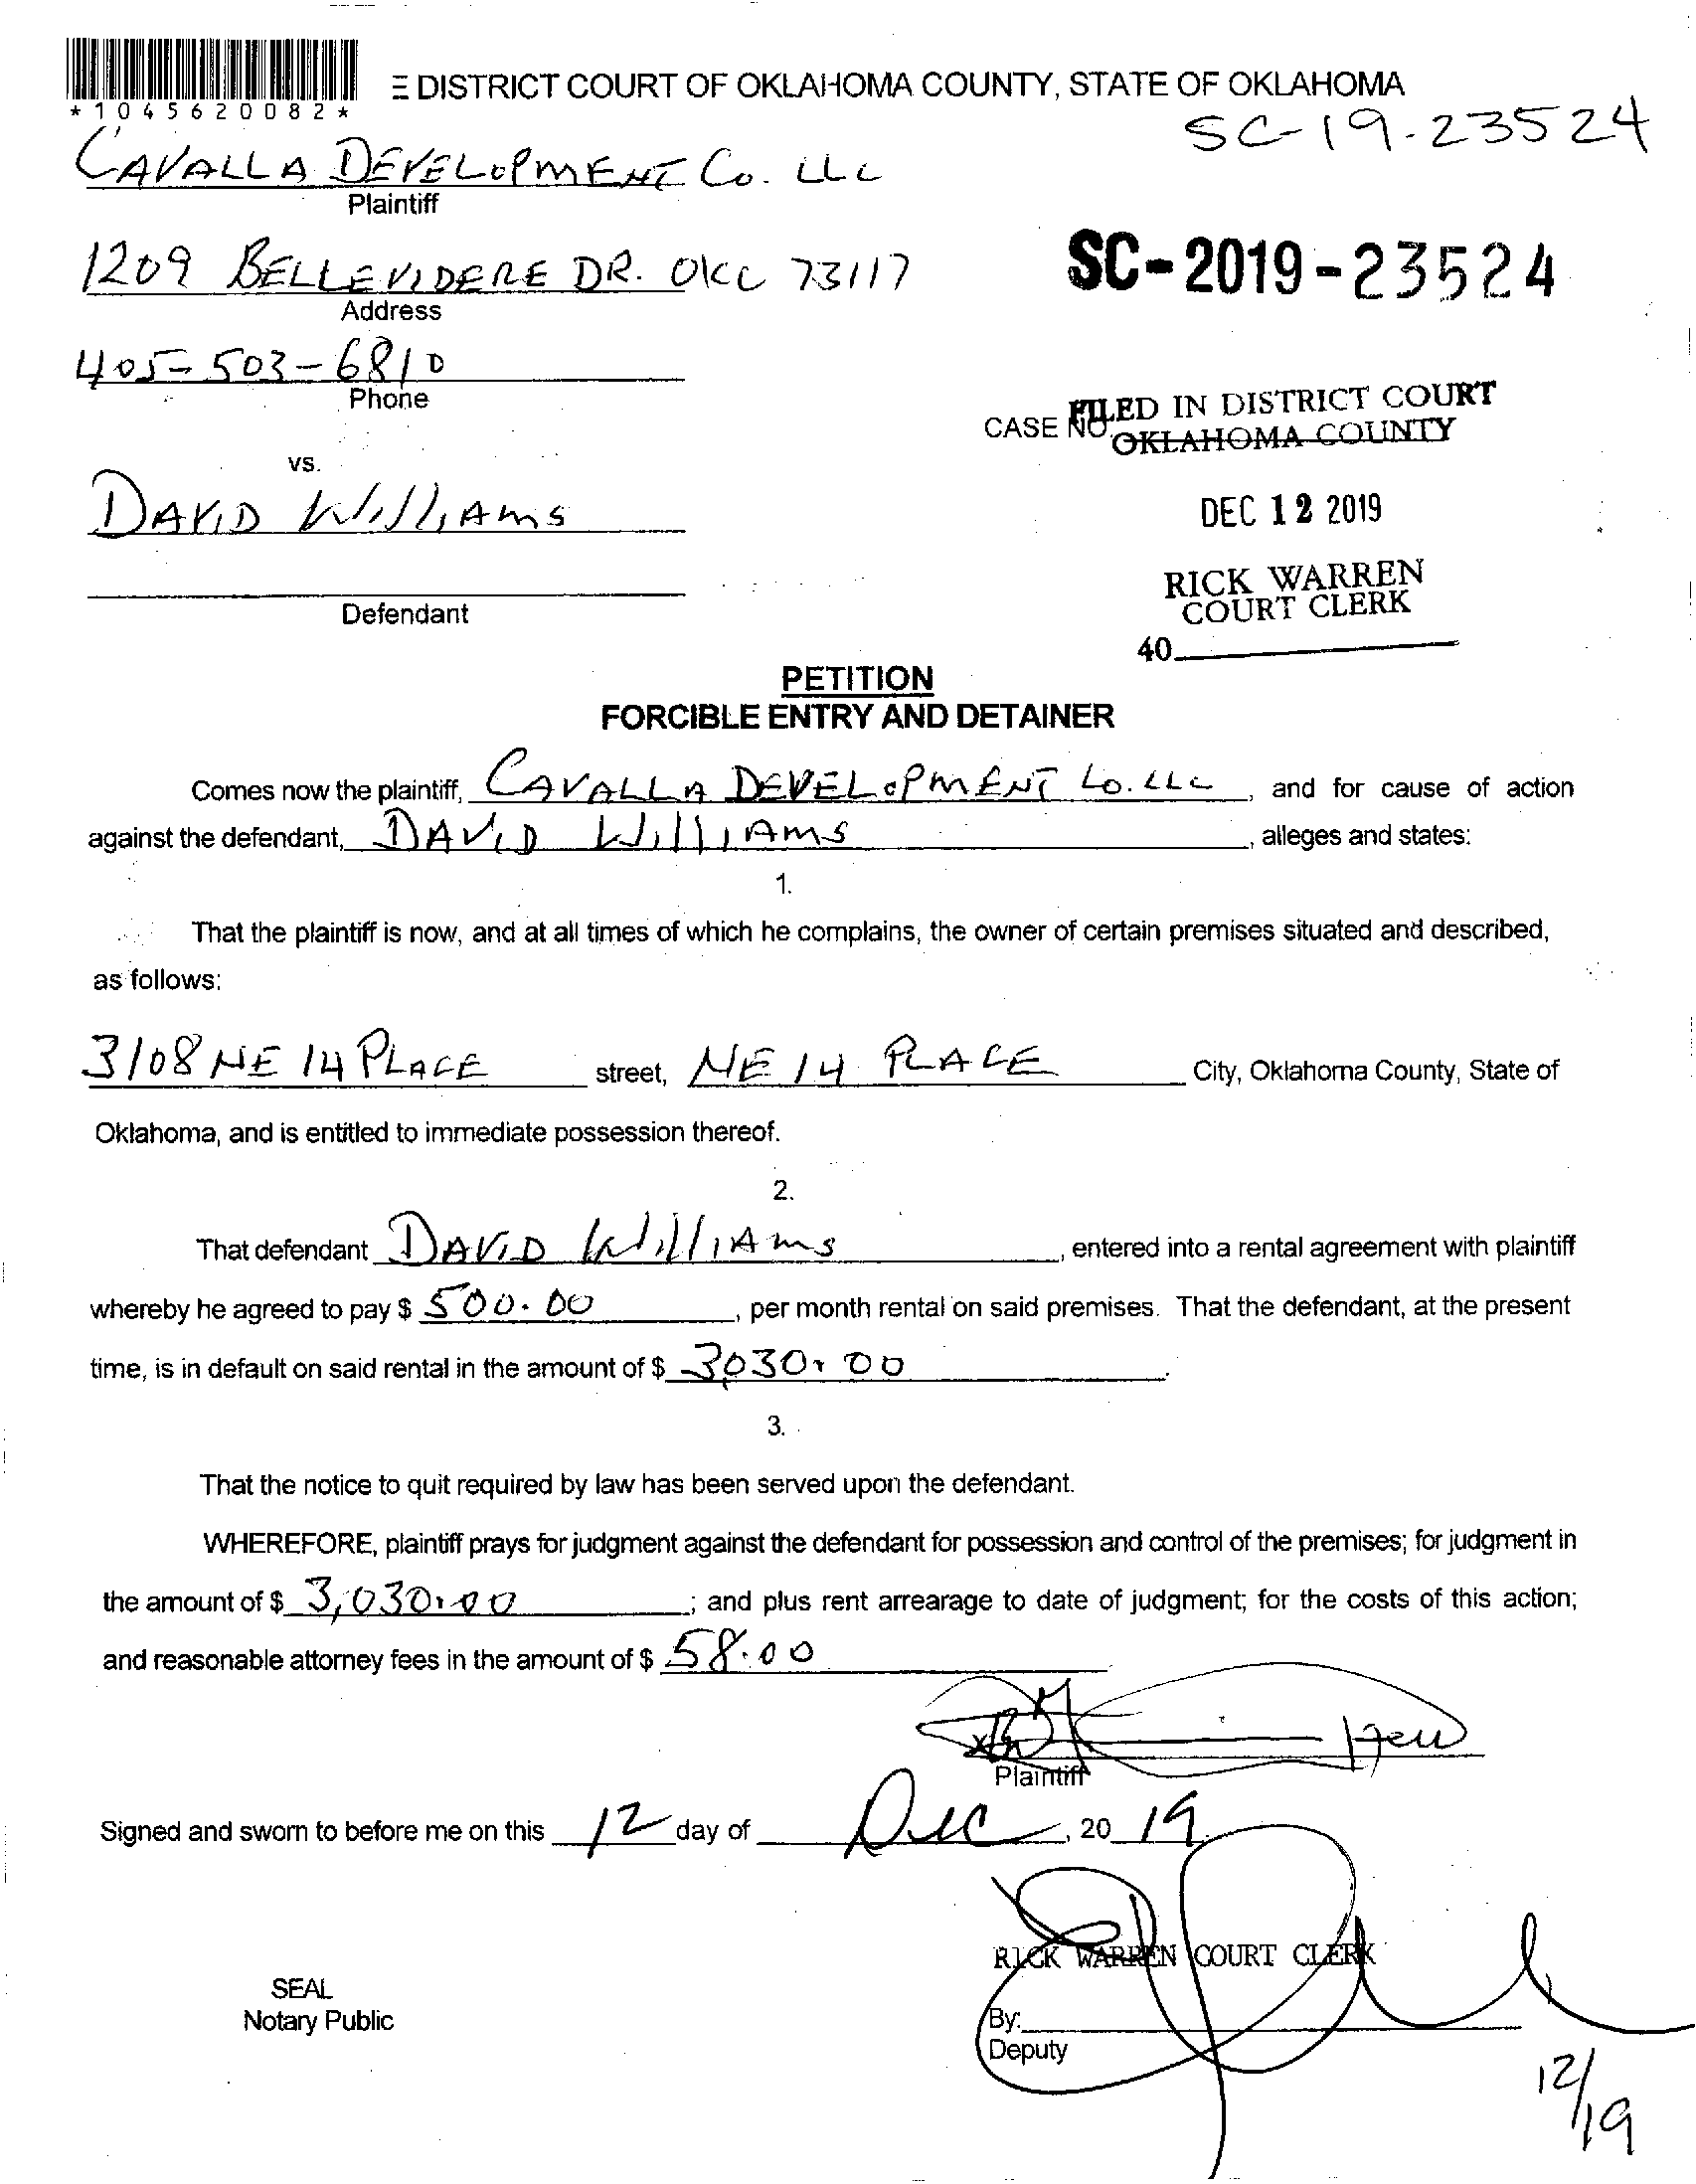 E DISTRICT COURT OF OKLAHOMA COUNTY, STATE OF OKLAHOMA
*1045620082*
SC-19-23524
CAVALLA DEVELOPMENT Co. LLC
Plaintiff
1209 BELLEVIDERE DR. OKC 73117
SC-2019-23524
Address
405-503-6810
Phone
FILED IN DISTRICT COURT
CASE NO. OKLAHOMA COUNTY
vs.
DAVID WilliAms
DEC 12 2019
RICK WARREN
COURT CLERK
Defendant
40
PETITION
FORCIBLE ENTRY AND DETAINER
Comes now the plaintiff, CAVALLA DEVELOPMENT Co. LLC, and for cause of action
against the defendant, DAVID WilliAms, alleges and states:
1.
That the plaintiff is now, and at all times of which he complains, the owner of certain premises situated and described,
as follows:
3108 NE 14 PLACE street, NE 14 PLACE City, Oklahoma County, State of
Oklahoma, and is entitled to immediate possession thereof.
2.
That defendant DAVID WilliAms, entered into a rental agreement with plaintiff
whereby he agreed to pay $ 500.00, per month rental on said premises. That the defendant, at the present
time, is in default on said rental in the amount of $ 3030.00.
3.
That the notice to quit required by law has been served upon the defendant.
WHEREFORE, plaintiff prays for judgment against the defendant for possession and control of the premises; for judgment in
the amount of $ 3,030.00; and plus rent arrearage to date of judgment; for the costs of this action;
and reasonable attorney fees in the amount of $ 58.00
Plaintiff
Signed and sworn to before me on this 12 day of Dec, 20 19.
RICK WARREN COURT CLERK
SEAL
Notary Public
By:
Deputy
12/19